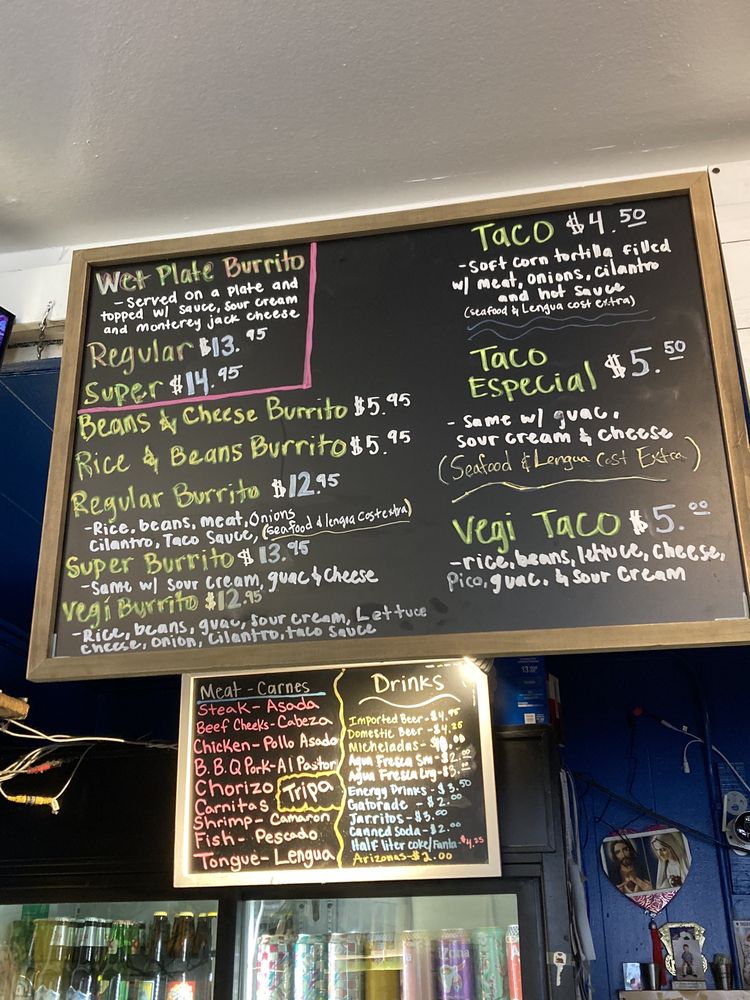 Wet Plate Burrito
- Served on a plate and
topped w/ sauce, sour cream
and monterey jack cheese
Regular $13.95
Super $14.95
Beans & Cheese Burrito $5.95
Rice & Beans Burrito $5.95
Regular Burrito $12.95
- Rice, beans, meat, Onions
Cilantro, Taco Sauce, (seafood & lengua cost extra)
Super Burrito $13.95
- Same w/ sour cream, guac & cheese
Vegi Burrito $12.95
- Rice, beans, guac, sour cream, Lettuce
cheese, onion, cilantro, taco sauce
Taco $4.50
- Soft corn tortilla filled
w/ meat, onions, cilantro
and hot sauce
(seafood & Lengua cost extra)
Taco
Especial $5.50
- Same w/ guac,
sour cream & cheese
(Seafood & Lengua Cost Extra)
Vegi Taco $5.00
- rice, beans, lettuce, cheese,
Pico, guac. & sour cream
Meat - Carnes
Steak - Asada
Beef Cheeks - Cabeza
Chicken - Pollo Asado
B.B.Q Pork - Al Pastor
Chorizo
Tripa
Carnitas
Shrimp - Camaron
Fish - Pescado
Tongue - Lengua
Drinks
Imported Beer - $4.95
Domestic Beer - $4.25
Micheladas -
Agua Fresca Sm - $2.
Agua Fresca Lrg - $3.
Energy Drinks - $3.50
Gatorade - $2.00
Jarritos - $3.00
Canned Soda - $2.00
Half liter coke/Fanta - $4.25
Arizonas - $2.00